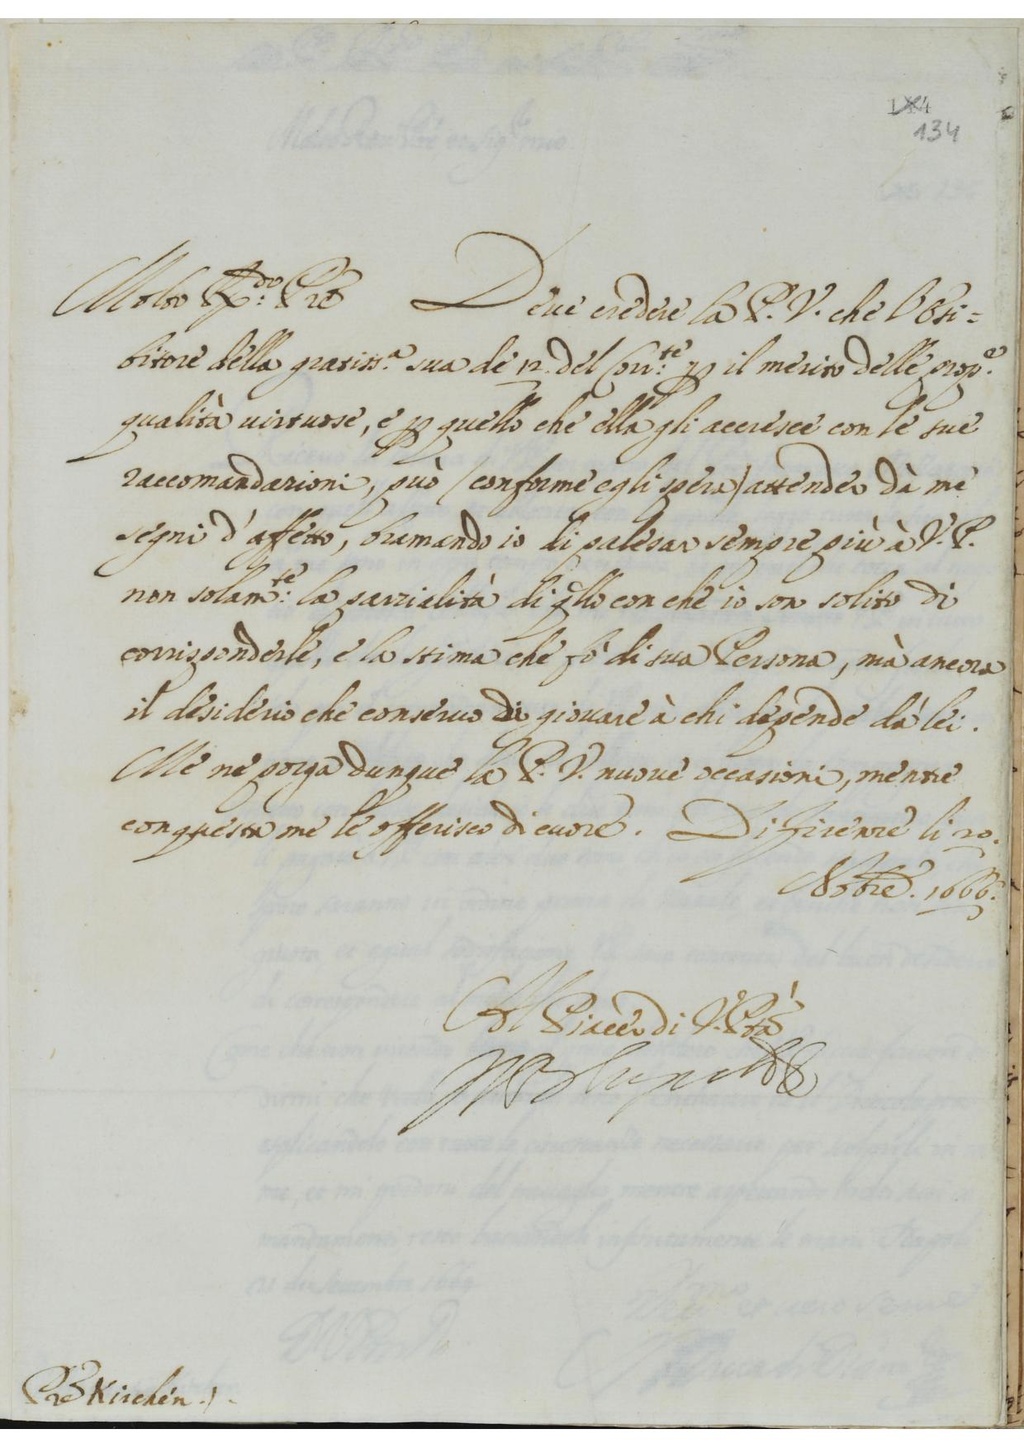 134
Molto R.do Pre Deve credere la P. V. che l'Esi=
bitore della gratiss.a sua de 12. del Corr.te p il merito delle prop.e
qualità virtuose, e p quello che ella gli accresce con le sue
raccomandazioni, può (conforme egli spera) attender dà me
segni d'affetto, bramando io di palesar sempre più à V. P.
non solam.te: la parzialità di qllo con che io son solito di
corrisponderle, e la stima che fò di sua Persona, mà ancora
il desiderio che conservo di giovare à chi depende dà lei.
Me ne porga dunque la P. V. nuove occasioni, mentre
con questa me le offerisco di cuore. Di Firenze li 20.
Nobre. 1666.
Al Piacer di V. Ptà
Pre Kircher.